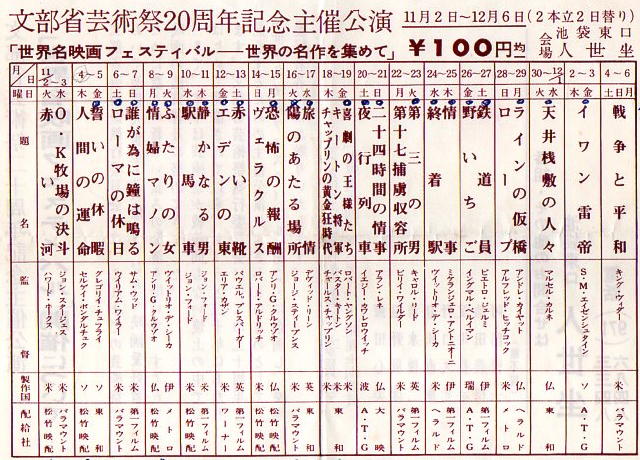 文部省芸術祭20周年記念主催公演
11月2日〜12月6日(2本立2日替り)
「世界名映画フェスティバル――世界の名作を集めて」
¥100円均一
会場 池袋東口 人世坐
月/日 11/2〜3 4〜5 6〜7 8〜9 10〜11 12〜13 14〜15 16〜17 18〜19 20〜21 22〜23 24〜25 26〜27 28〜29 30〜12/1 2〜3 4〜6
曜日 火水 木金 土日 月火 水木 金土 日月 火水 木金 土日 月火 水木 金土 日月 火水 木金 土日月
題名
赤い河
O・K牧場の決斗
人間の運命
誓いの休暇
ローマの休日
誰が為に鐘は鳴る
情婦マノン
ふたりの女
駅馬車
静かなる男
エデンの東
赤い靴
ヴェラクルス
恐怖の報酬
陽のあたる場所
旅情
チャップリンの黄金狂時代
キートン将軍
喜劇の王様たち
夜行列車
二十四時間の情事
第十七捕虜収容所
第三の男
終着駅
情事
野いちご
鉄道員
ロープ
ラインの仮橋
天井桟敷の人々
イワン雷帝
戦争と平和
監督
ハワード・ホークス
ジョン・スタージェス
セルゲイ・ボンダルチュク
グレゴリイ・チュフライ
ウイリアム・ワイラー
サム・ウッド
アンリ・G・クルウゾオ
ヴィットリオ・デ・シーカ
ジョン・フォード
ジョン・フォード
エリア・カザン
パウエル、プレスバーガー
ロバート・アルドリッチ
アンリ・G・クルウゾオ
ジョージ・スティーブンス
デヴィッド・リーン
チャールス・チャップリン
バスター・キートン
ロバート・ヤングソン
イエジー・カワレロウィッチ
アラン・レネ
ビリー・ワイルダー
キャロル・リード
ヴィットリオ・デ・シーカ
ミケランジェロ・アントニオーニ
イングマル・ベルイマン
ピエトロ・ジェルミ
アルフレッド・ヒッチコック
アンドレ・カイヤット
マルセル・カルネ
S・M・エイゼンシュタイン
キング・ヴィダー
製作国 米 米 ソ ソ 米 米 仏 伊 米 米 米 英 米 仏 米 英 米 米 波 仏 米 英 米 伊 瑞 伊 米 仏 仏 ソ 米
配給社
松竹映配
パラマウント
松竹映配
パラマウント
松竹映配
メトロ
松竹映配
第一フィルム
ワーナー
第一フィルム
松竹映配
松竹映配
パラマウント
東和
東和
A・T・G
大映
パラマウント
第一フィルム
ヘラルド
A・T・G
第一フィルム
メトロ
ヘラルド
東和
A・T・G
パラマウント